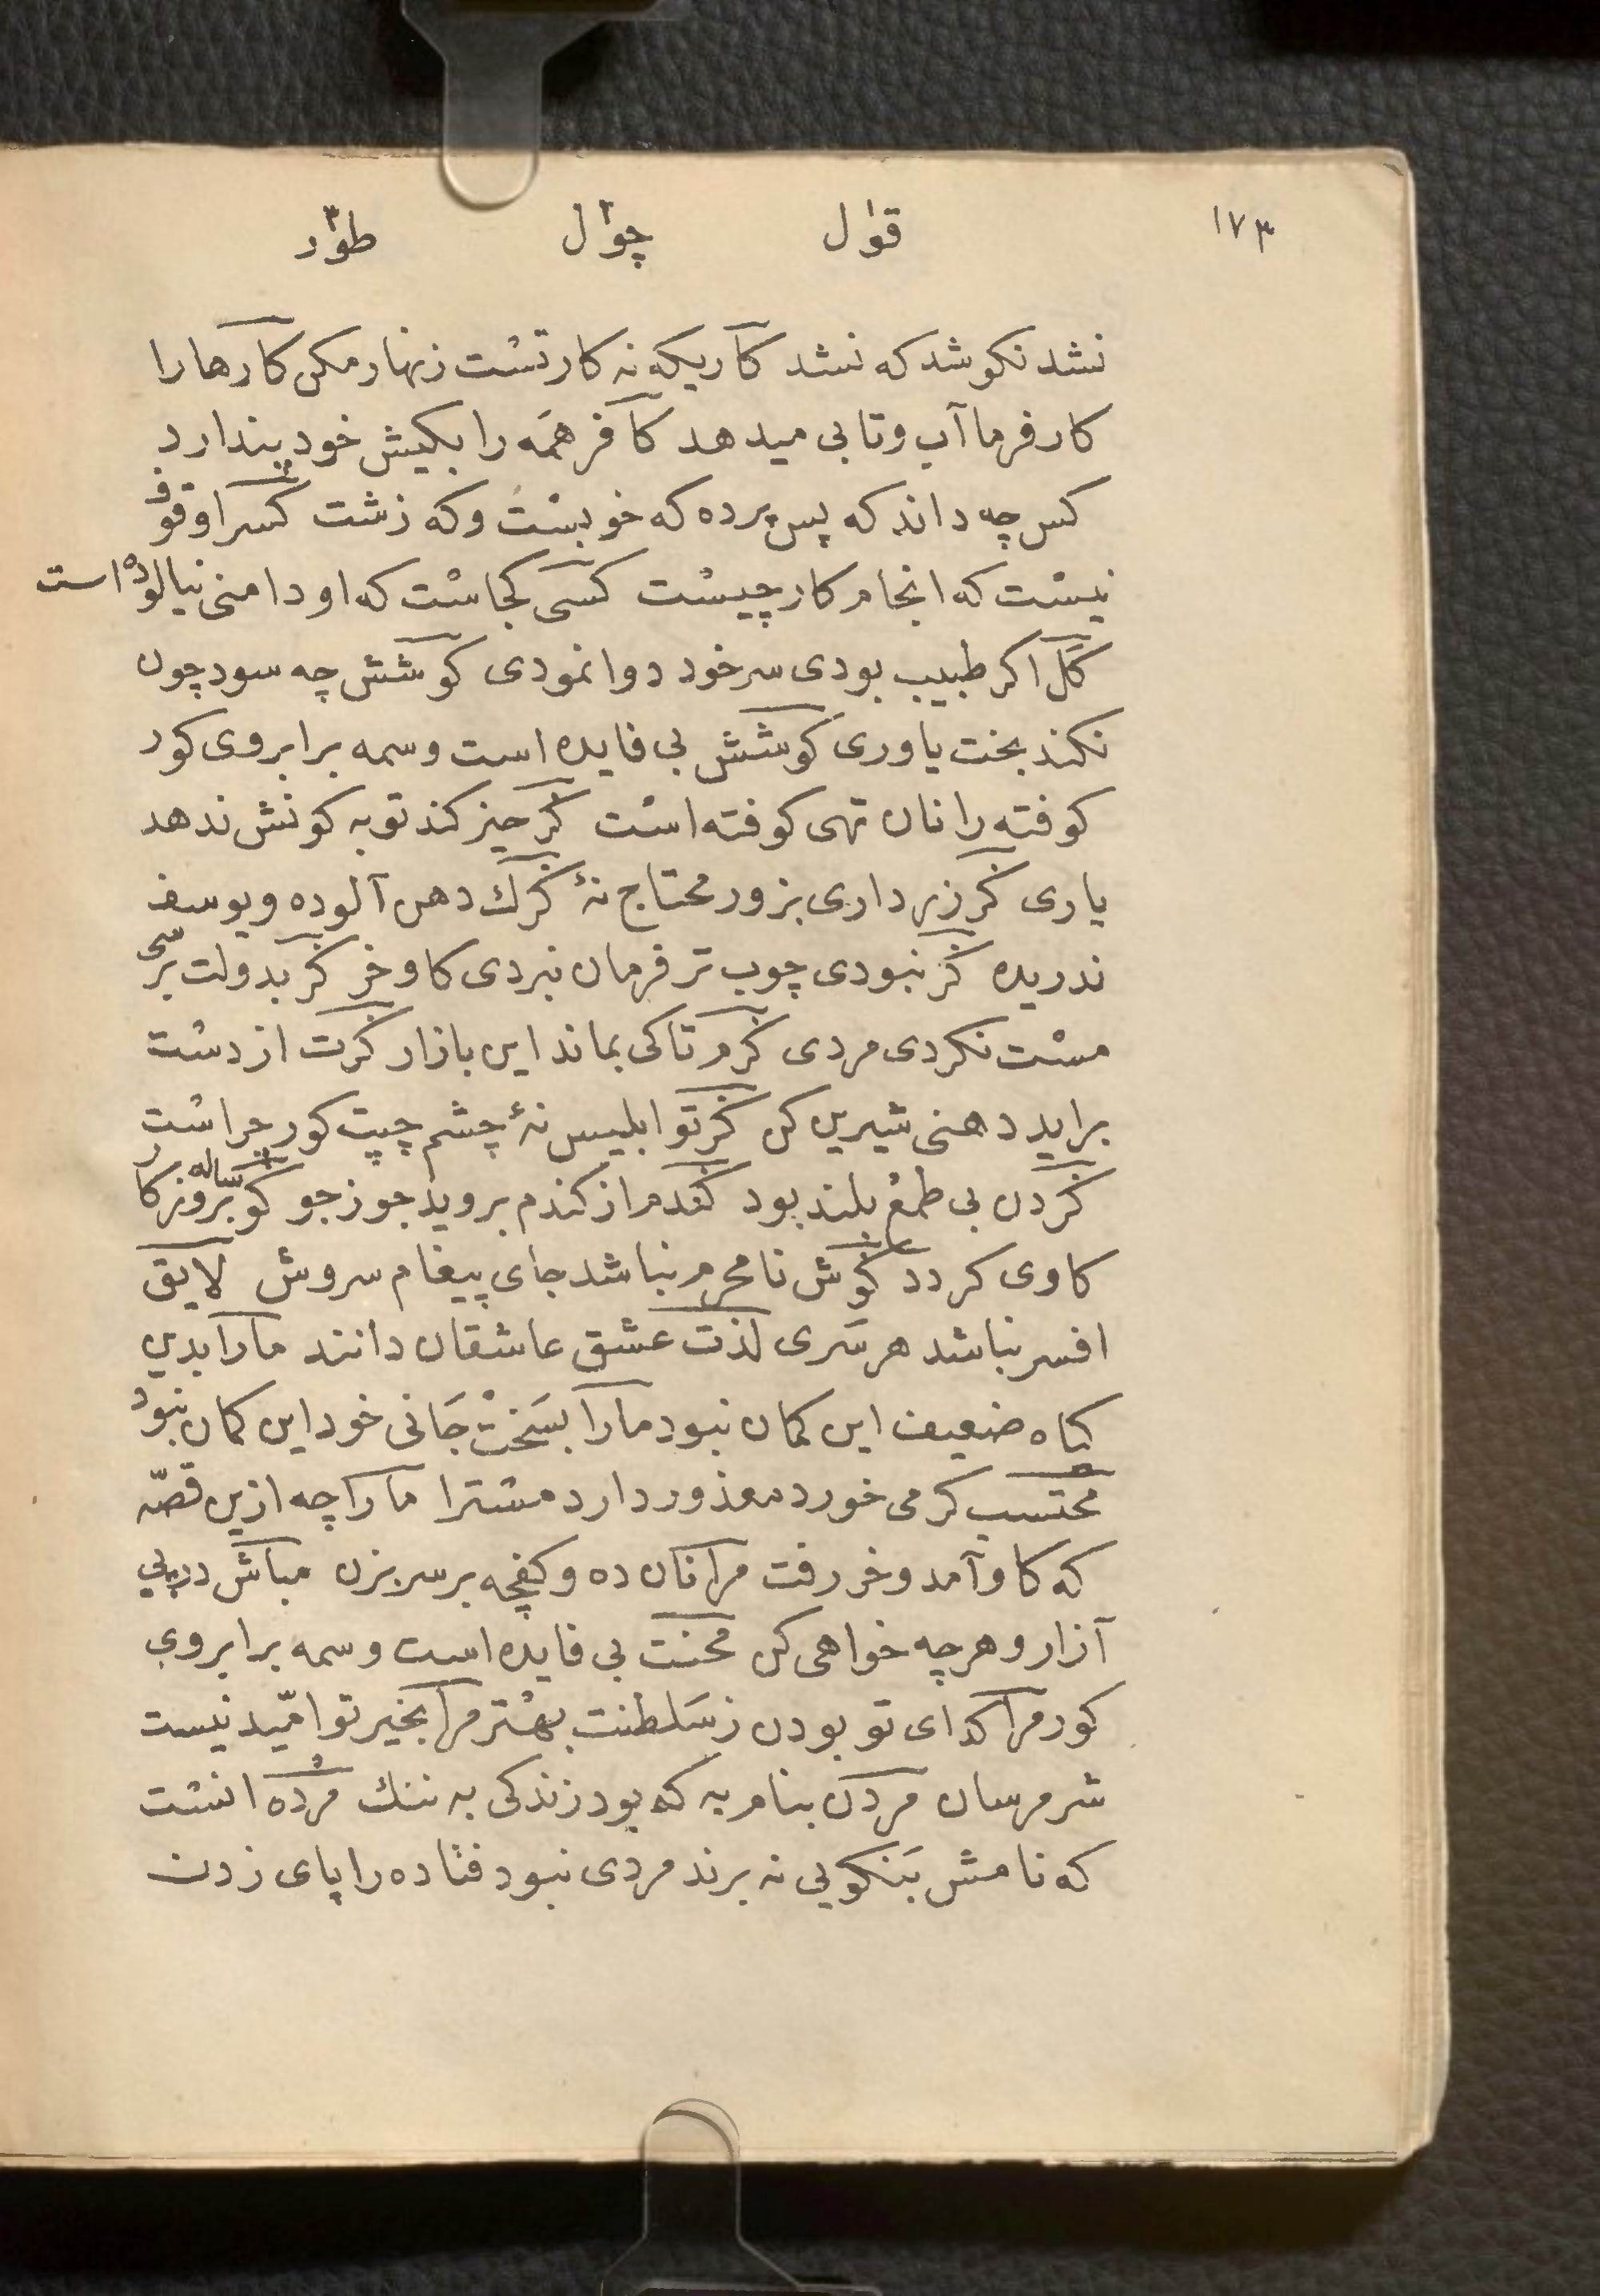 ١٧٣
قول چول طور
نشد نکو شد که نشد کاریکه نه کار تست زنهار مکن کارها را
کار فرما آب و تابی میدهد کافر همه را بکیش خود پندارد
کس چه داند که پس پرده که خوبست و که زشت کسرا وقوف
نیست که انجام کار چیست کسی کجاست که او دامنی نیالوده است
کل اکر طبیب بودی سر خود دوا نمودی کوشش چه سود چون
نکند بخت یاوری کوشش بی فایده است وسمه بر ابروی کور
کوفته را نان تهی کوفته است کر حیز کند توبه کونش ندهد
یاری کر زر داری بزور محتاج نهٔ کرك دهن آلوده و یوسف
ندریده کر نبودی چوب تر فرمان نبردی کاو خر کر بدولت برسی
مست نکردی مردی کرم تا کی بماند این بازار کرت از دست
براید دهنی شیرین کن کر تو ابلیس نهٔ چشم چپت کور چراست
کردن بی طمع بلند بود کندم از کندم بروید جو ز جو کوساله بروزکار
کاوی کردد کوش نامحرم نباشد جای پیغام سروش لایق
افسر نباشد هر سری لذت عشق عاشقان دانند مارا بدین
کیاه ضعیف این کمان نبود مارا بسخت جانی خود این کمان نبود
محتسب کر می خورد معذور دارد مسترا مارا چه ازین قصّه
که کاو آمد و خر رفت مرا نان ده و کفچه بر سر بزن مباش در پی
آزار و هر چه خواهی کن محنت بی فایده است وسمه بر ابروی
کور مرا کدای تو بودن ز سلطنت بهتر مرا بخیر تو امّید نیست
شر مرسان مردن بنام به که بود زندکی به ننك مرده انست
که نامش بنکویی نه برند مردی نبود فتاده را پای زدن